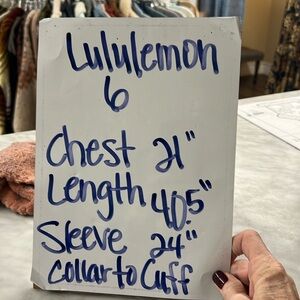 Lululemon
6
Chest 21"
Length 40.5"
Sleeve 24"
Collar to Cuff